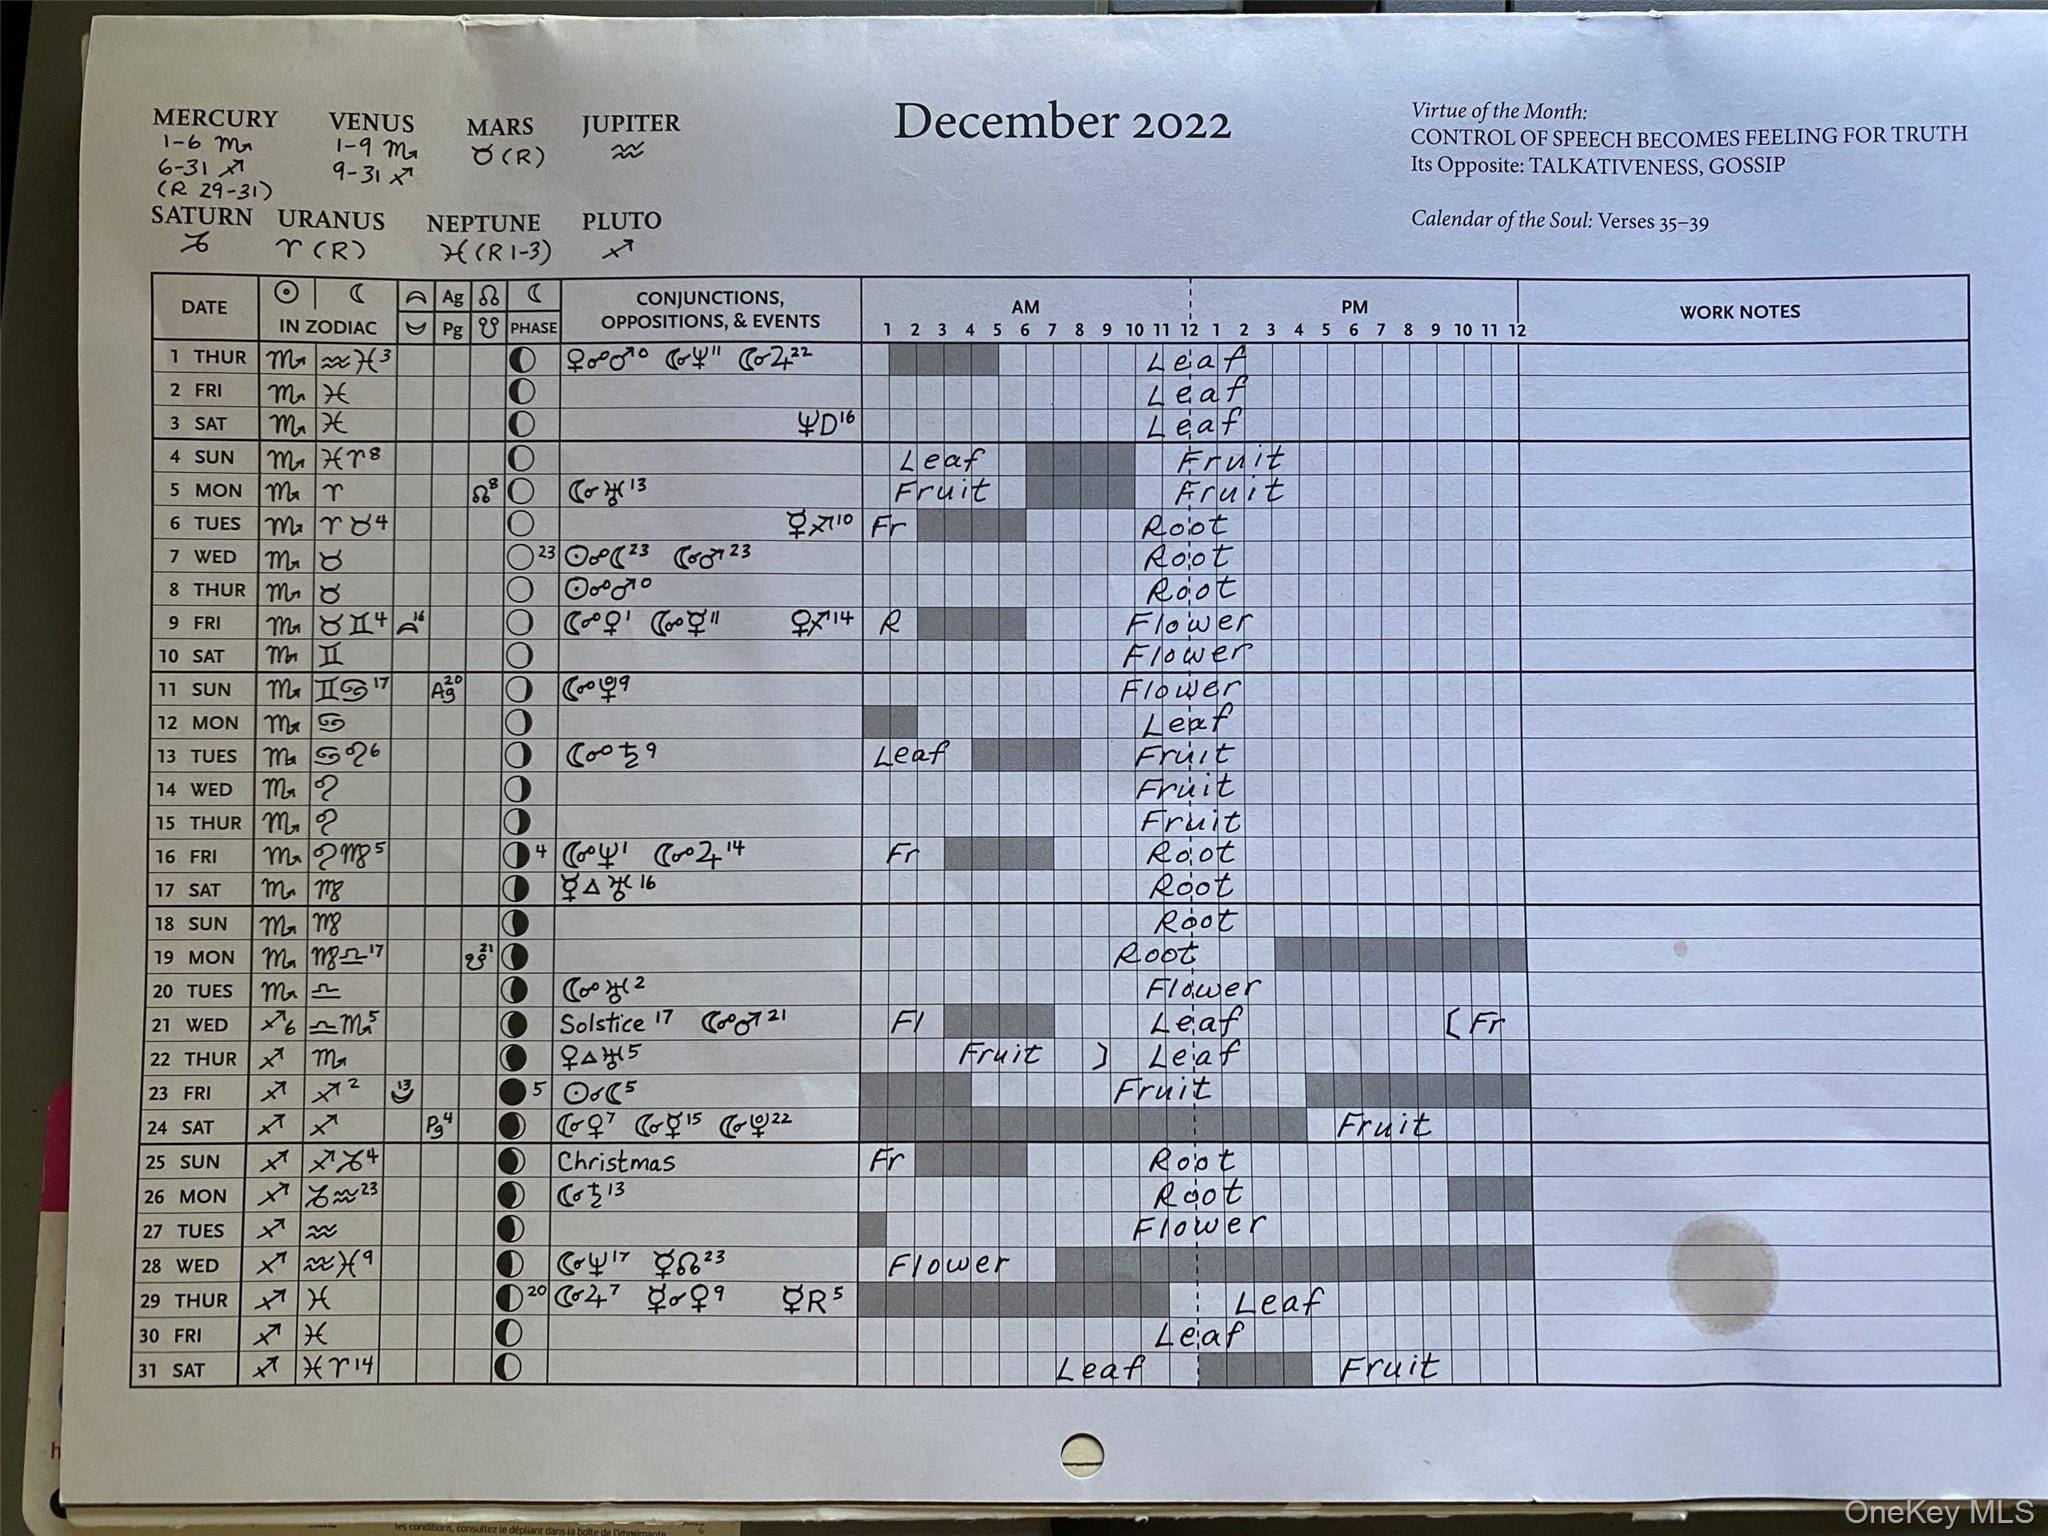 December 2022
MERCURY VENUS MARS JUPITER
1-6 ♏ 1-9 ♏ ♉(R) ♒
6-31 ♐ 9-31 ♐
(R 29-31)
SATURN URANUS NEPTUNE PLUTO
♑ ♈(R) ♓(R 1-3) ♐
Virtue of the Month:
CONTROL OF SPEECH BECOMES FEELING FOR TRUTH
Its Opposite: TALKATIVENESS, GOSSIP
Calendar of the Soul: Verses 35–39
DATE ☉ ☾ IN ZODIAC Ag Pg ☊ ☋ ☾ PHASE CONJUNCTIONS, OPPOSITIONS, & EVENTS AM PM WORK NOTES
1 2 3 4 5 6 7 8 9 10 11 12 1 2 3 4 5 6 7 8 9 10 11 12
1 THUR ♏ ♒♓3 ♀☍♂0 ☾☌♆11 ☾☌♃22 Leaf
2 FRI ♏ ♓ Leaf
3 SAT ♏ ♓ ♆D16 Leaf
4 SUN ♏ ♓♈8 Leaf Fruit
5 MON ♏ ♈ ☊8 ☾☌♅13 Fruit Fruit
6 TUES ♏ ♈♉4 ☿♐10 Fr Root
7 WED ♏ ♉ 23 ☉☍☾23 ☾☌♂23 Root
8 THUR ♏ ♉ ☉☍♂0 Root
9 FRI ♏ ♉♊4 16 ☾☍♀1 ☾☍☿11 ♀♐14 R Flower
10 SAT ♏ ♊ Flower
11 SUN ♏ ♊♋17 Ag20 ☾☍♇9 Flower
12 MON ♏ ♋ Leaf
13 TUES ♏ ♋♌6 ☾☍♄9 Leaf Fruit
14 WED ♏ ♌ Fruit
15 THUR ♏ ♌ Fruit
16 FRI ♏ ♌♍5 4 ☾☍♆1 ☾☍♃14 Fr Root
17 SAT ♏ ♍ ☿△♅16 Root
18 SUN ♏ ♍ Root
19 MON ♏ ♍♎17 ☋21 Root
20 TUES ♏ ♎ ☾☍♅2 Flower
21 WED ♐6 ♎♏5 Solstice 17 ☾☍♂21 Fl Leaf [Fr
22 THUR ♐ ♏ ♀△♅5 Fruit ] Leaf
23 FRI ♐ ♐2 13 5 ☉☌☾5 Fruit
24 SAT ♐ ♐ Pg4 ☾☌♀7 ☾☌☿15 ☾☌♇22 Fruit
25 SUN ♐ ♐♑4 Christmas Fr Root
26 MON ♐ ♑♒23 ☾☌♄13 Root
27 TUES ♐ ♒ Flower
28 WED ♐ ♒♓9 ☾☌♆17 ☿☊23 Flower
29 THUR ♐ ♓ 20 ☾☌♃7 ☿☌♀9 ☿R5 Leaf
30 FRI ♐ ♓ Leaf
31 SAT ♐ ♓♈14 Leaf Fruit
les conditions, consultez le dépliant dans la boîte de l'imprimante.
OneKey MLS